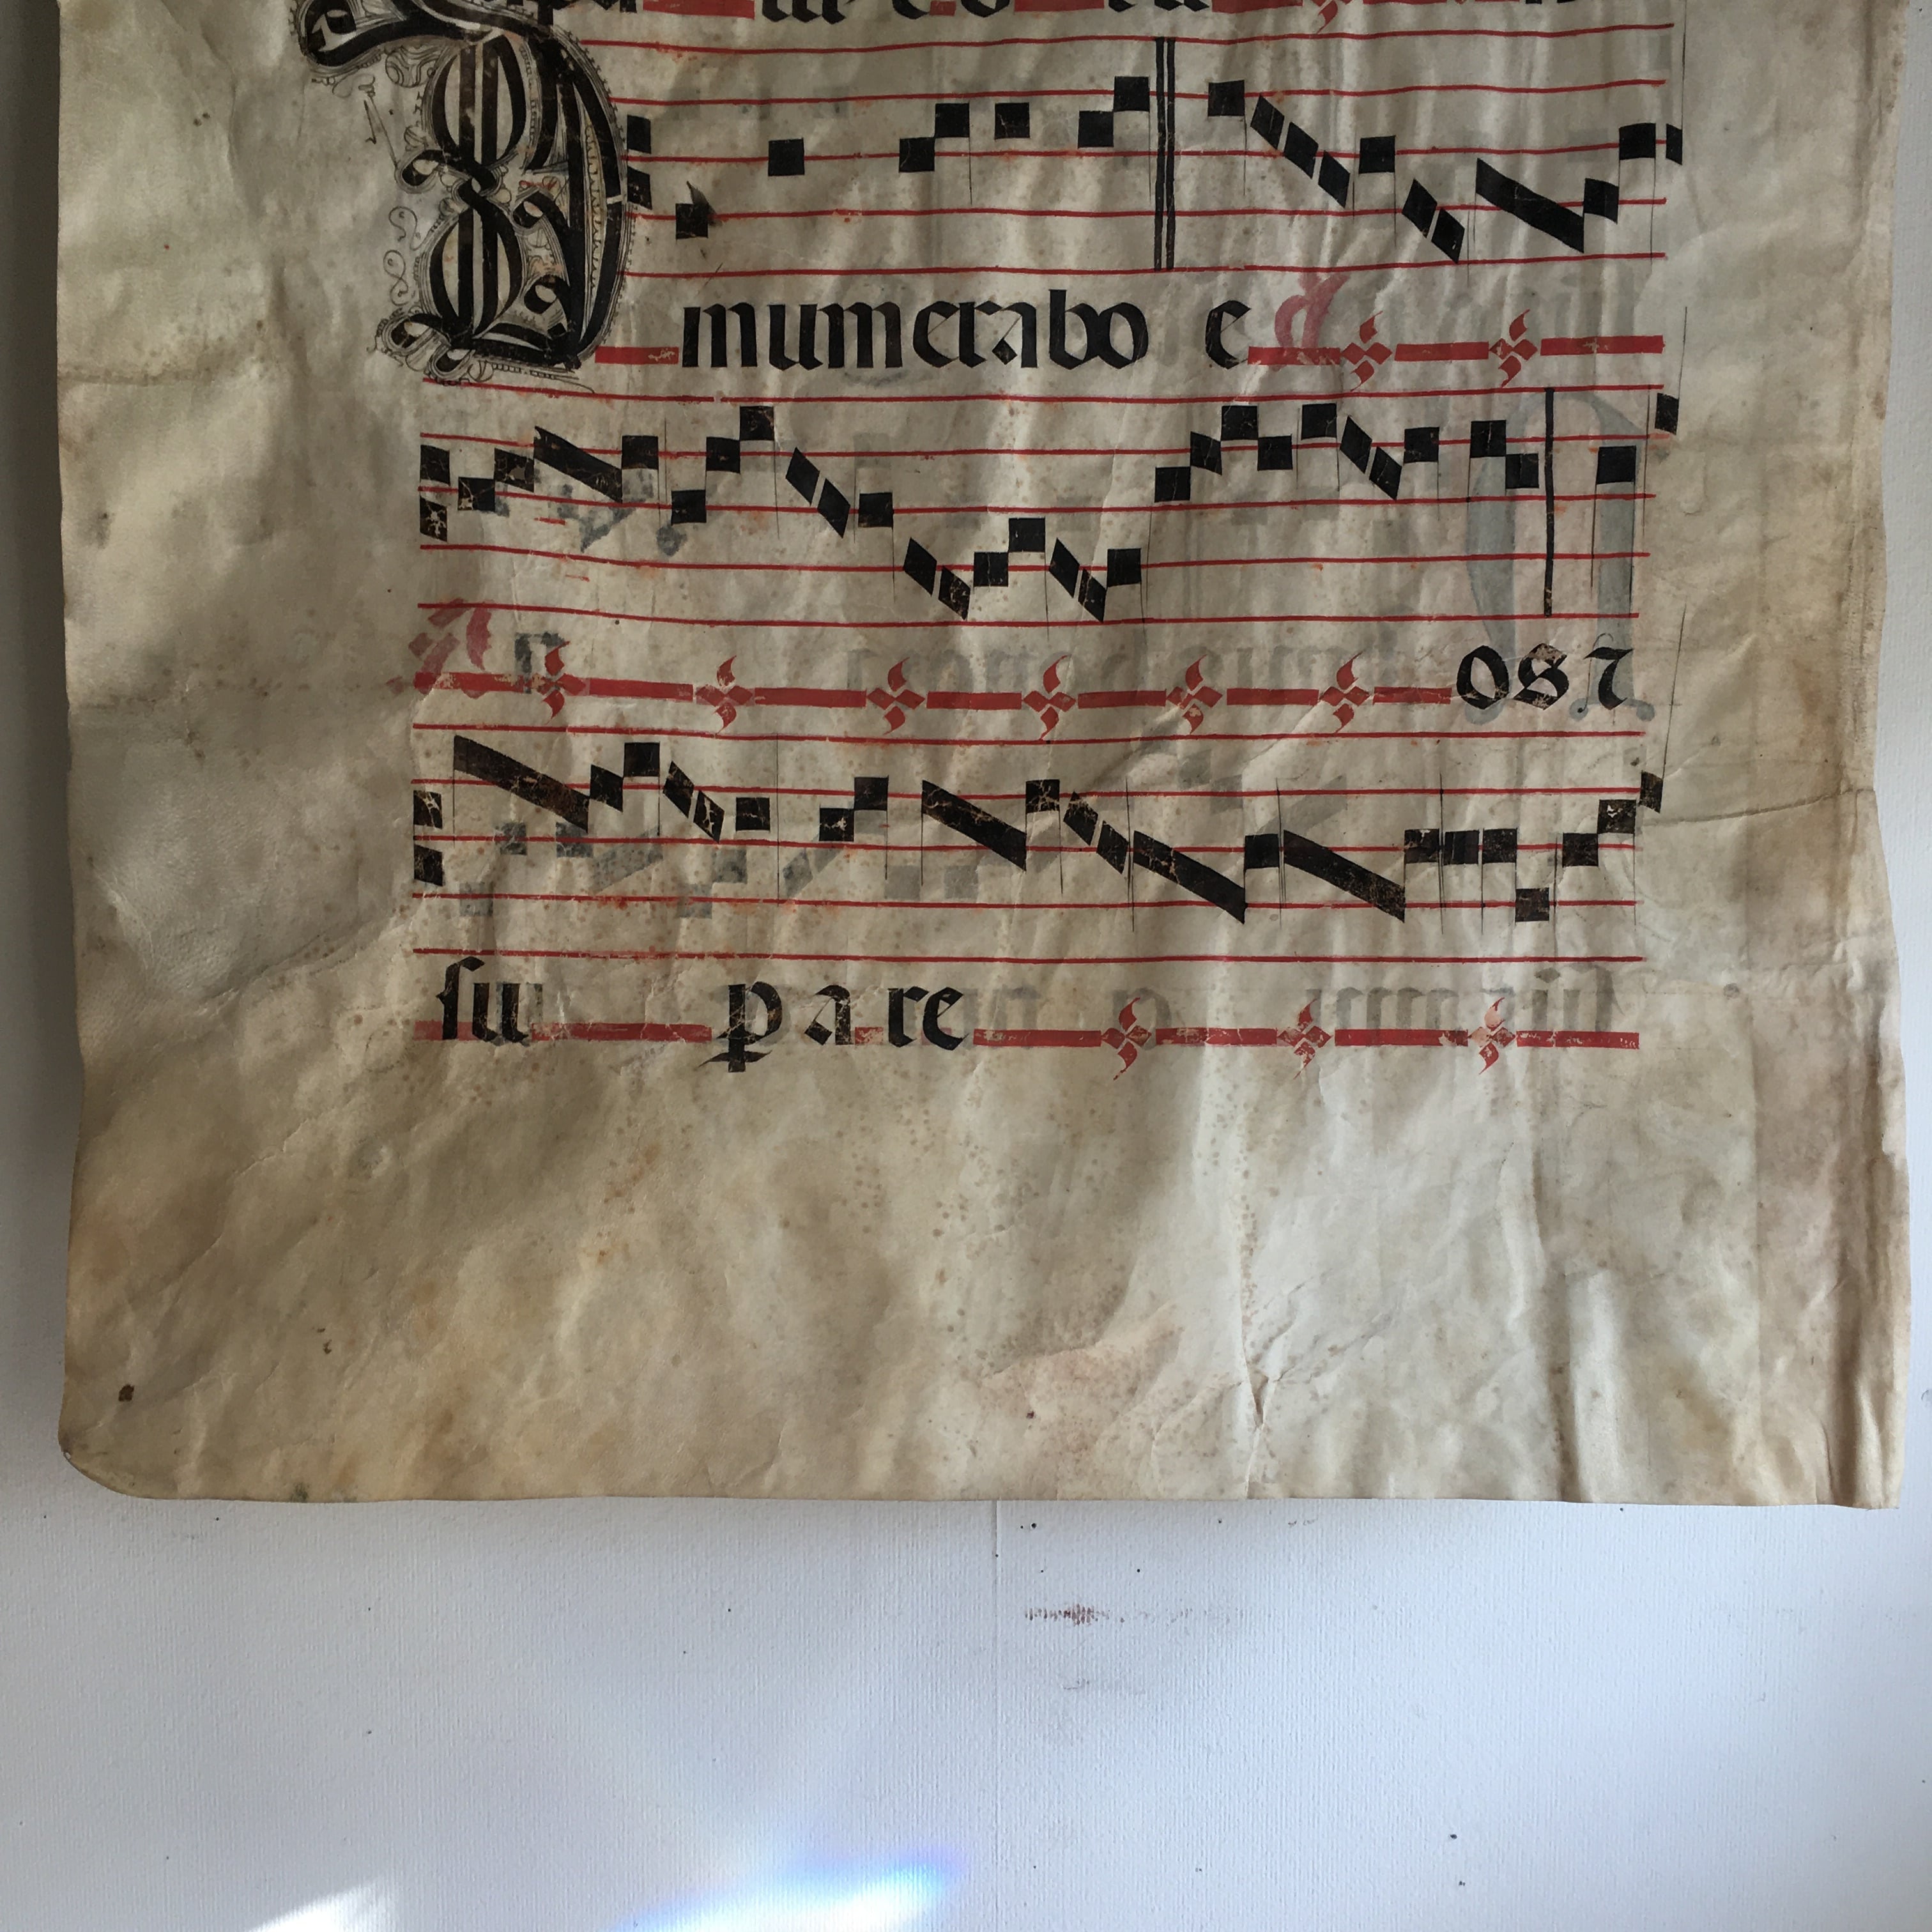 Dinumerabo e
os ⁊
su pare